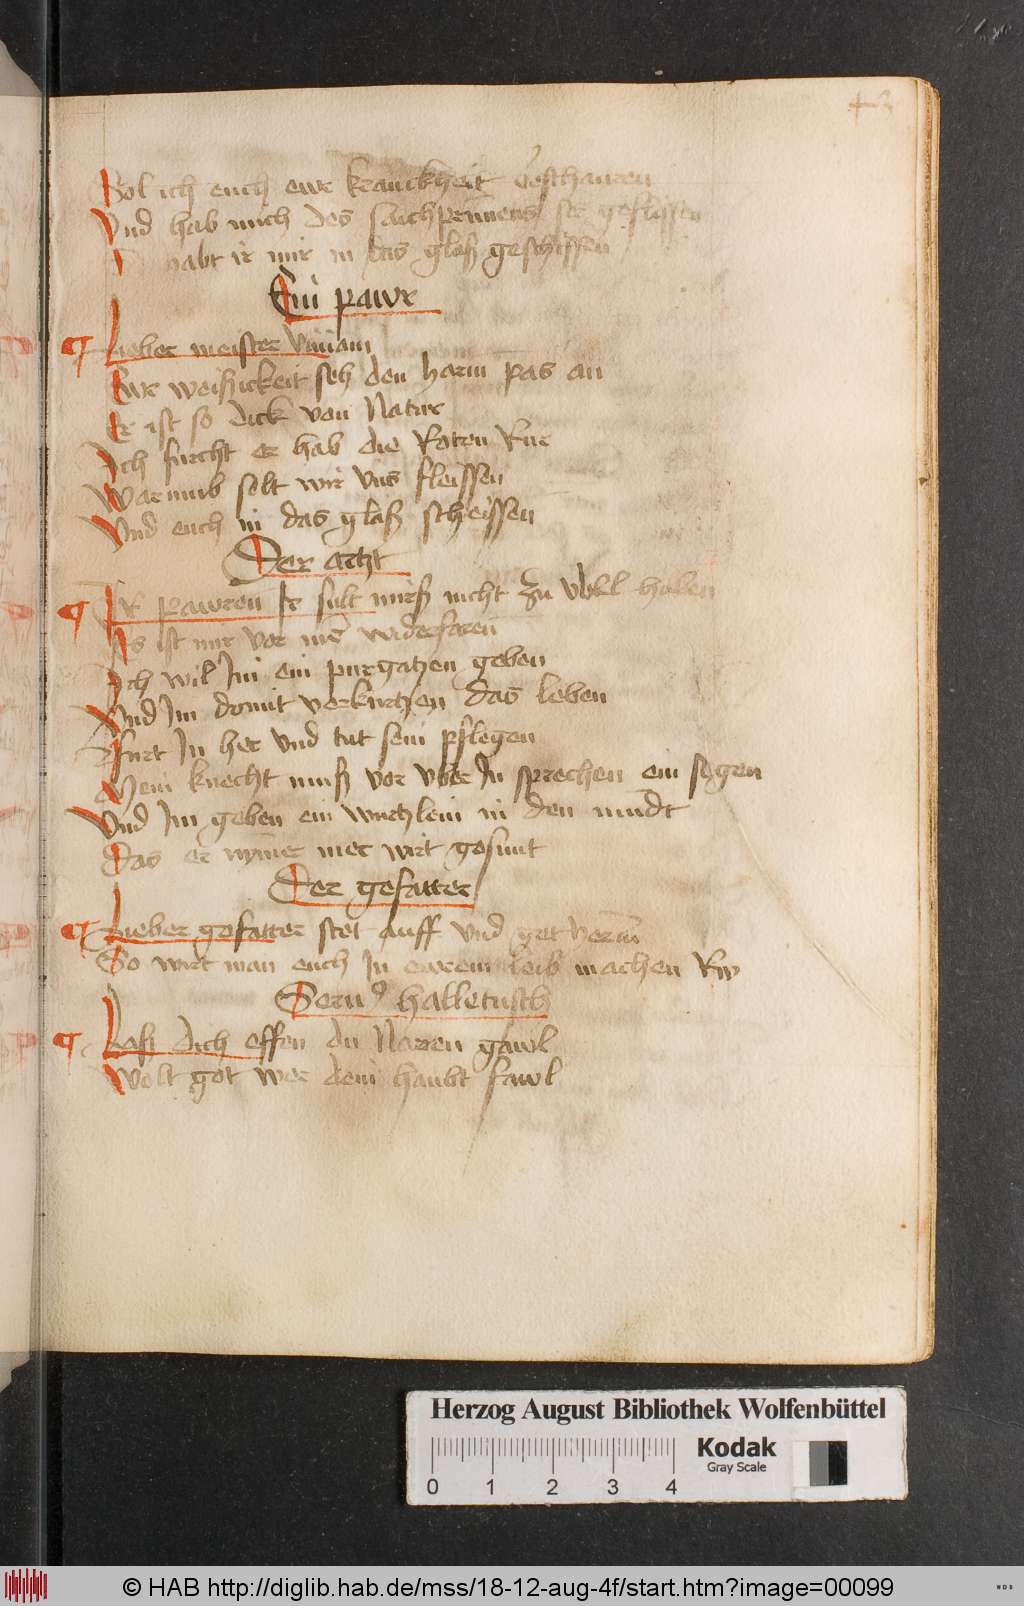 Sol ich euch ewr kranckheit beschauren
Vnd hab mich des saichprunnens ser geflissen
habt ir mir in das glaß geschissen
Ein pawr
Lieber meister Viuiam
Ewr weisickeit seh den harm pas an
Er ist so dick von Natur
Ich furcht er hab die Roten Rur
Warumb solt wir vns fleissen
Vnd euch in das glaß scheissen
Der artzt
Ir pawren Ir sult mirß nicht zu vbell haben
Es ist mir vor mer widerfaren
Ich wil Im ein purgatzen geben
Vnd Im domit verkurtzen das leben
Furt In her vnd tut sein pflegen
Mein knecht muß vor vber In sprechen ein segen
Vnd Im geben ein wurtzlein in den mundt
Das er nymer mer wirt gesunt
Der gefatter
Lieber gefatter stet auff vnd get herein
So wirt man euch In ewrem leib machen Rw
Seruus halletusch
Laß dich effen du Narren gawl
Wolt got wer dein haubt fawl
Herzog August Bibliothek Wolfenbüttel
Kodak
Gray Scale
0 1 2 3 4
© HAB http://diglib.hab.de/mss/18-12-aug-4f/start.htm?image=00099